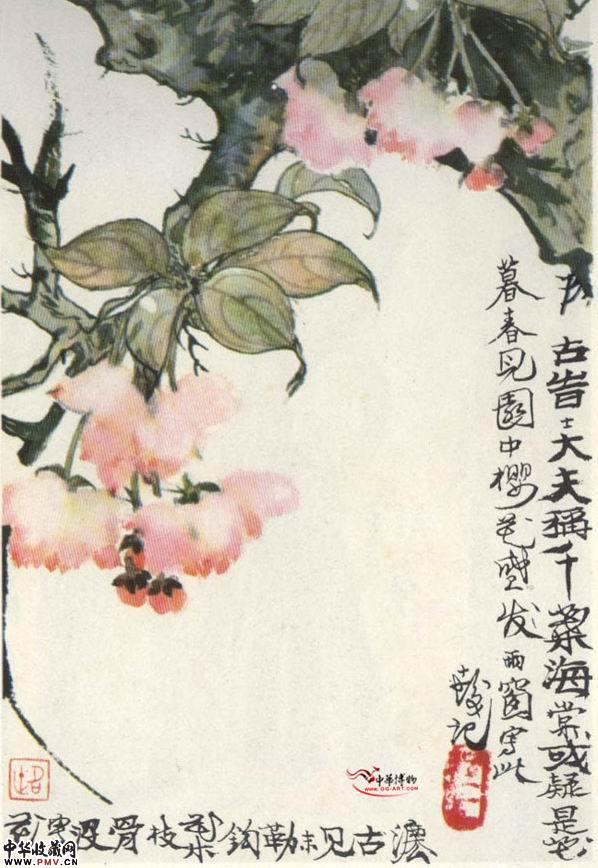 古昔士大夫稱千葉海棠或疑是
暮春見園中櫻花盛发雨窗寫此
記
古見未勒鈎枝骨沒
中華博物
www.gg-art.com
中华收藏网
WWW.PMV.CN